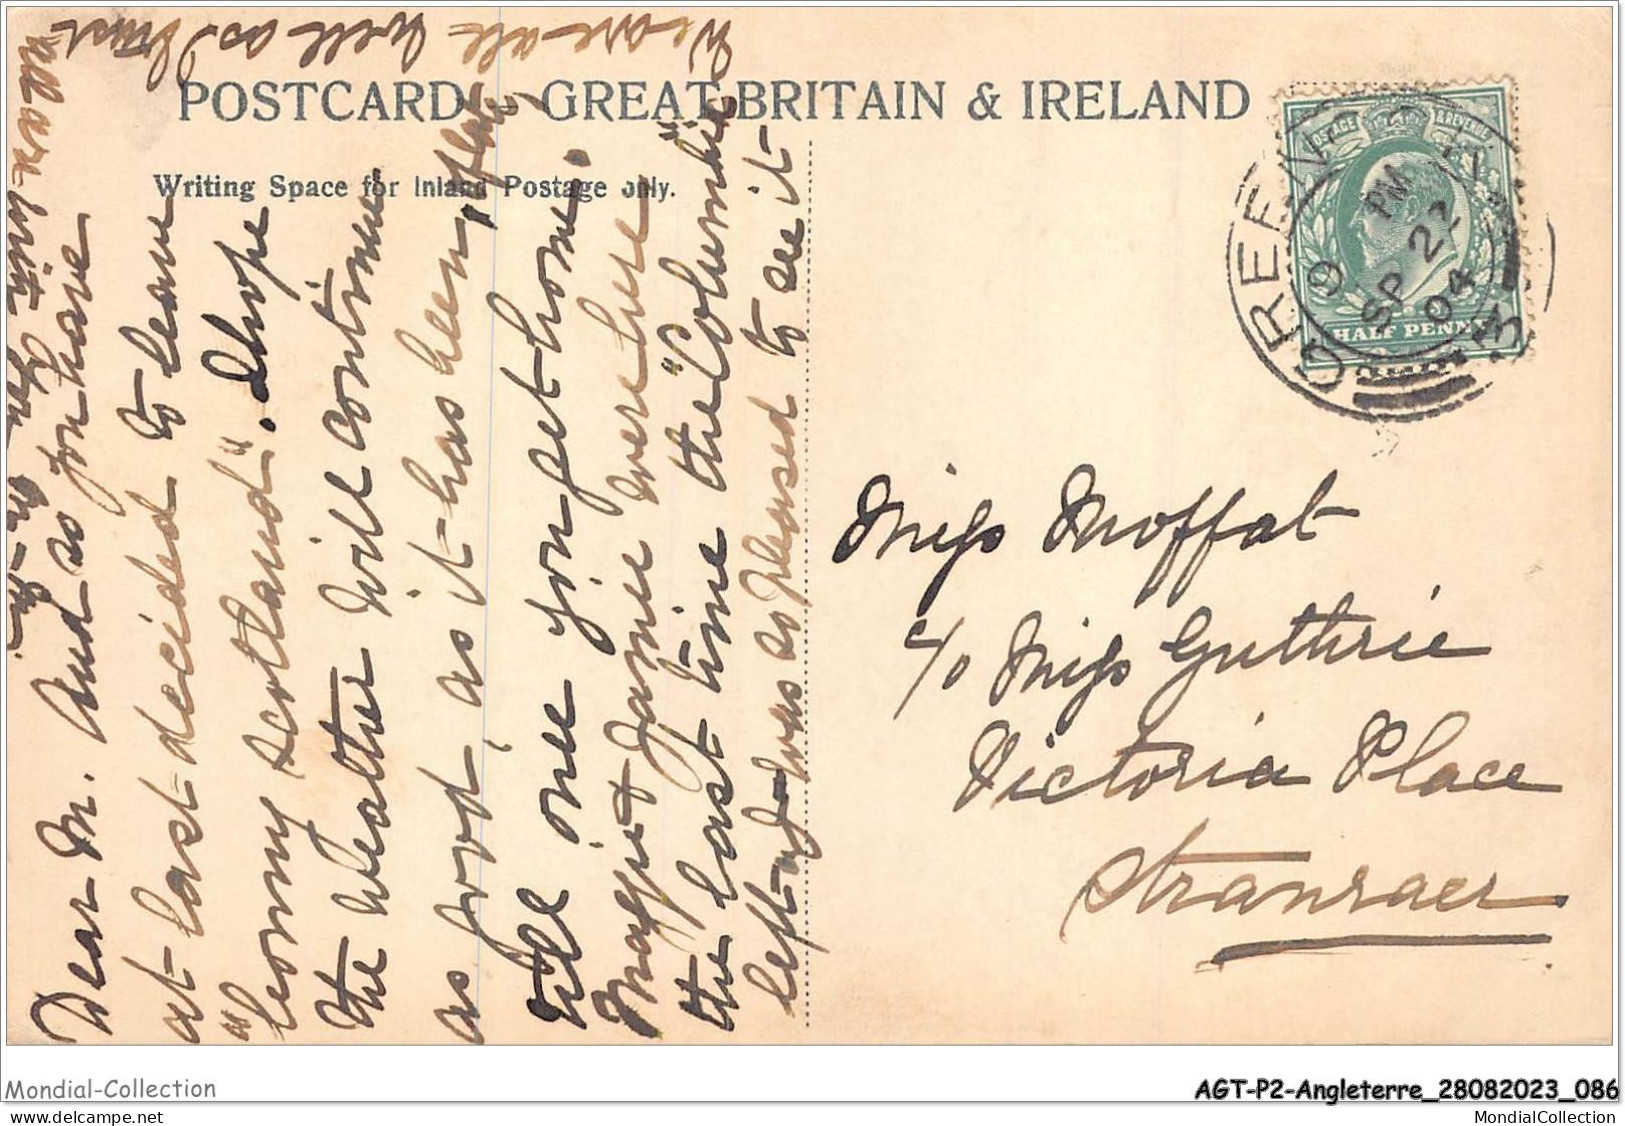 POSTCARD - GREAT BRITAIN & IRELAND
Writing Space for Inland Postage only.
POSTAGE & REVENUE
HALF PENNY
GREENOCK
9 PM
SP 22
04
Dear M. And so you have
at last decided to leave
"bonny Scotland". I hope
the weather will continue
as good, as it has been, of late,
till one you get home.
Maggie & Jamie were here
the last time the "Columbia"
left & I was so pleased to see it
We are all well as I trust
all are with you
Miss Moffat
c/o Miss Guthrie
Victoria Place
Stranraer
Mondial-Collection
AGT-P2-Angleterre_28082023_086
MondialCollection